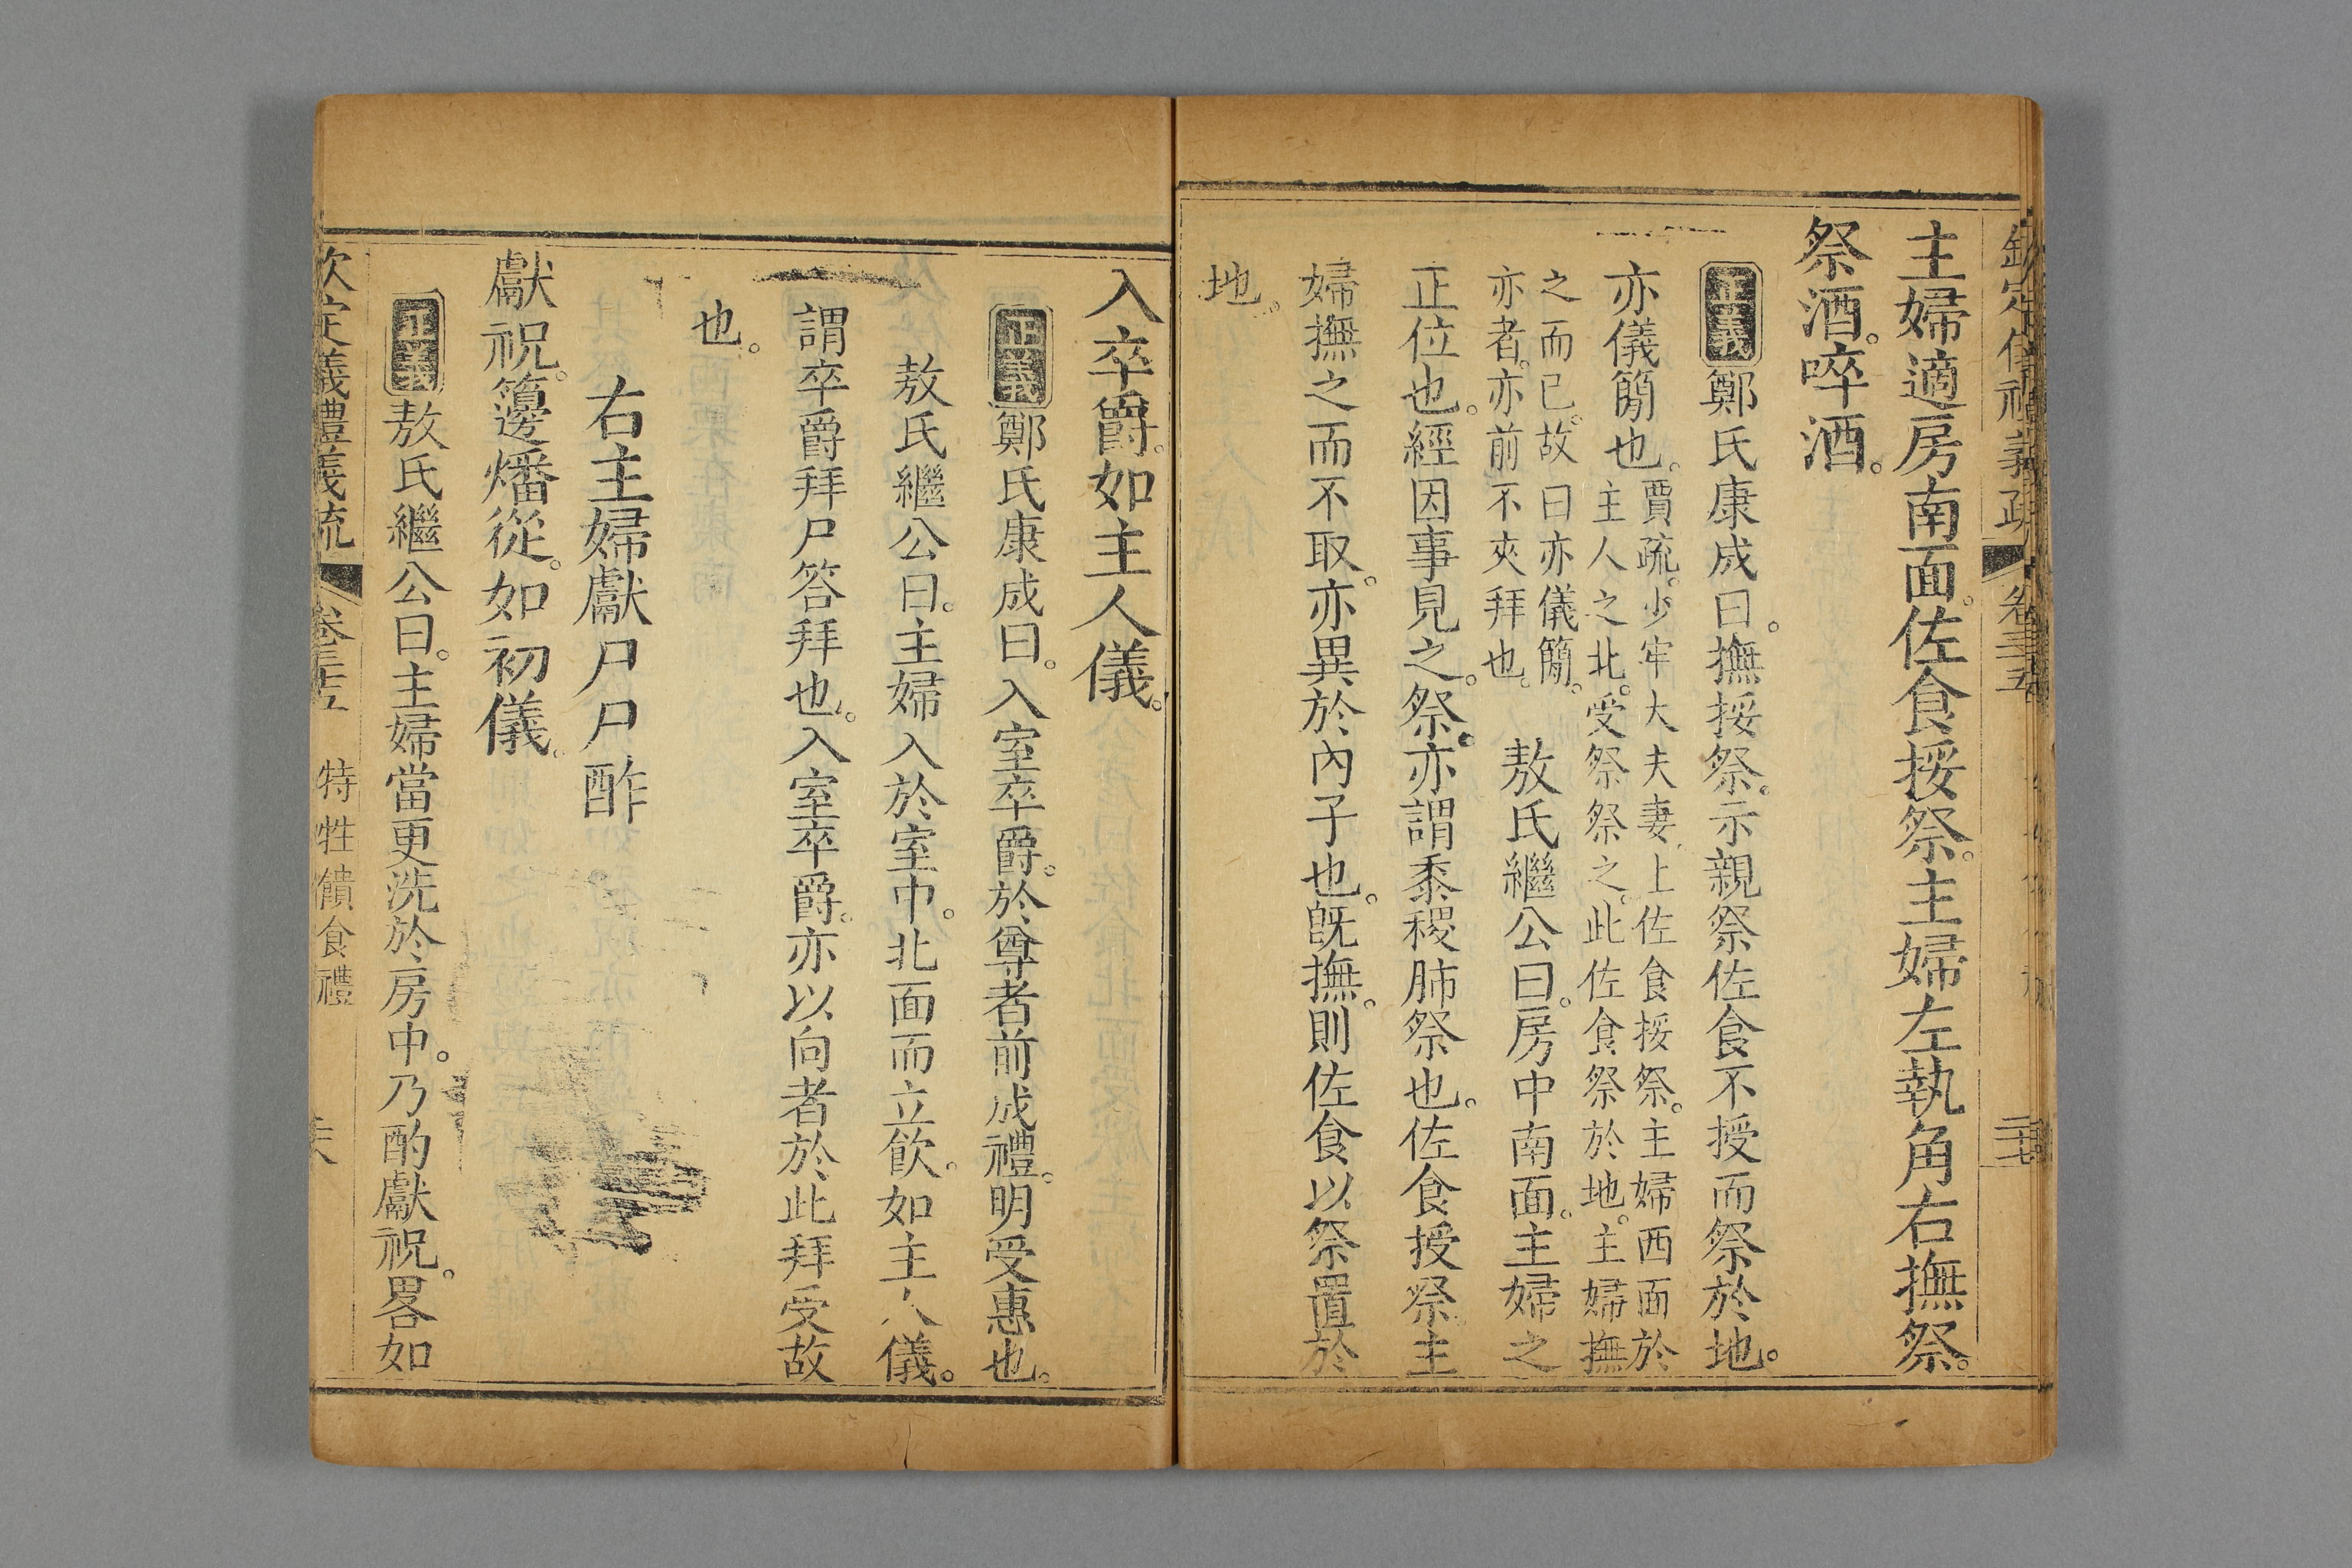 欽定儀禮義疏 卷三十五
主婦適房南面。佐食挼祭。主婦左執角右撫祭。
祭酒。啐酒。
正義鄭氏康成曰。撫挼祭。示親祭佐食不授而祭於地。
亦儀簡也。賈疏。少牢大夫妻。上佐食挼祭。主婦西面於
主人之北。受祭祭之。此佐食祭於地。主婦撫
之而已。故曰亦儀簡。
亦者。亦前不夾拜也。 敖氏繼公曰。房中南面。主婦之
正位也。經因事見之。祭。亦謂黍稷肺祭也。佐食授祭主
婦撫之而不取。亦異於內子也。旣撫。則佐食以祭置於
地。
入卒爵。如主人儀。
正義鄭氏康成曰。入室卒爵。於尊者前成禮。明受惠也。
敖氏繼公曰。主婦入於室中。北面而立飮。如主人儀。
謂卒爵拜尸答拜也。入室卒爵。亦以向者於此拜受故
也。
右主婦獻尸尸酢
獻祝。籩燔從。如初儀。
正義敖氏繼公曰。主婦當更洗於房中。乃酌獻祝。畧如
欽定儀禮義疏 卷三十五 特牲饋食禮